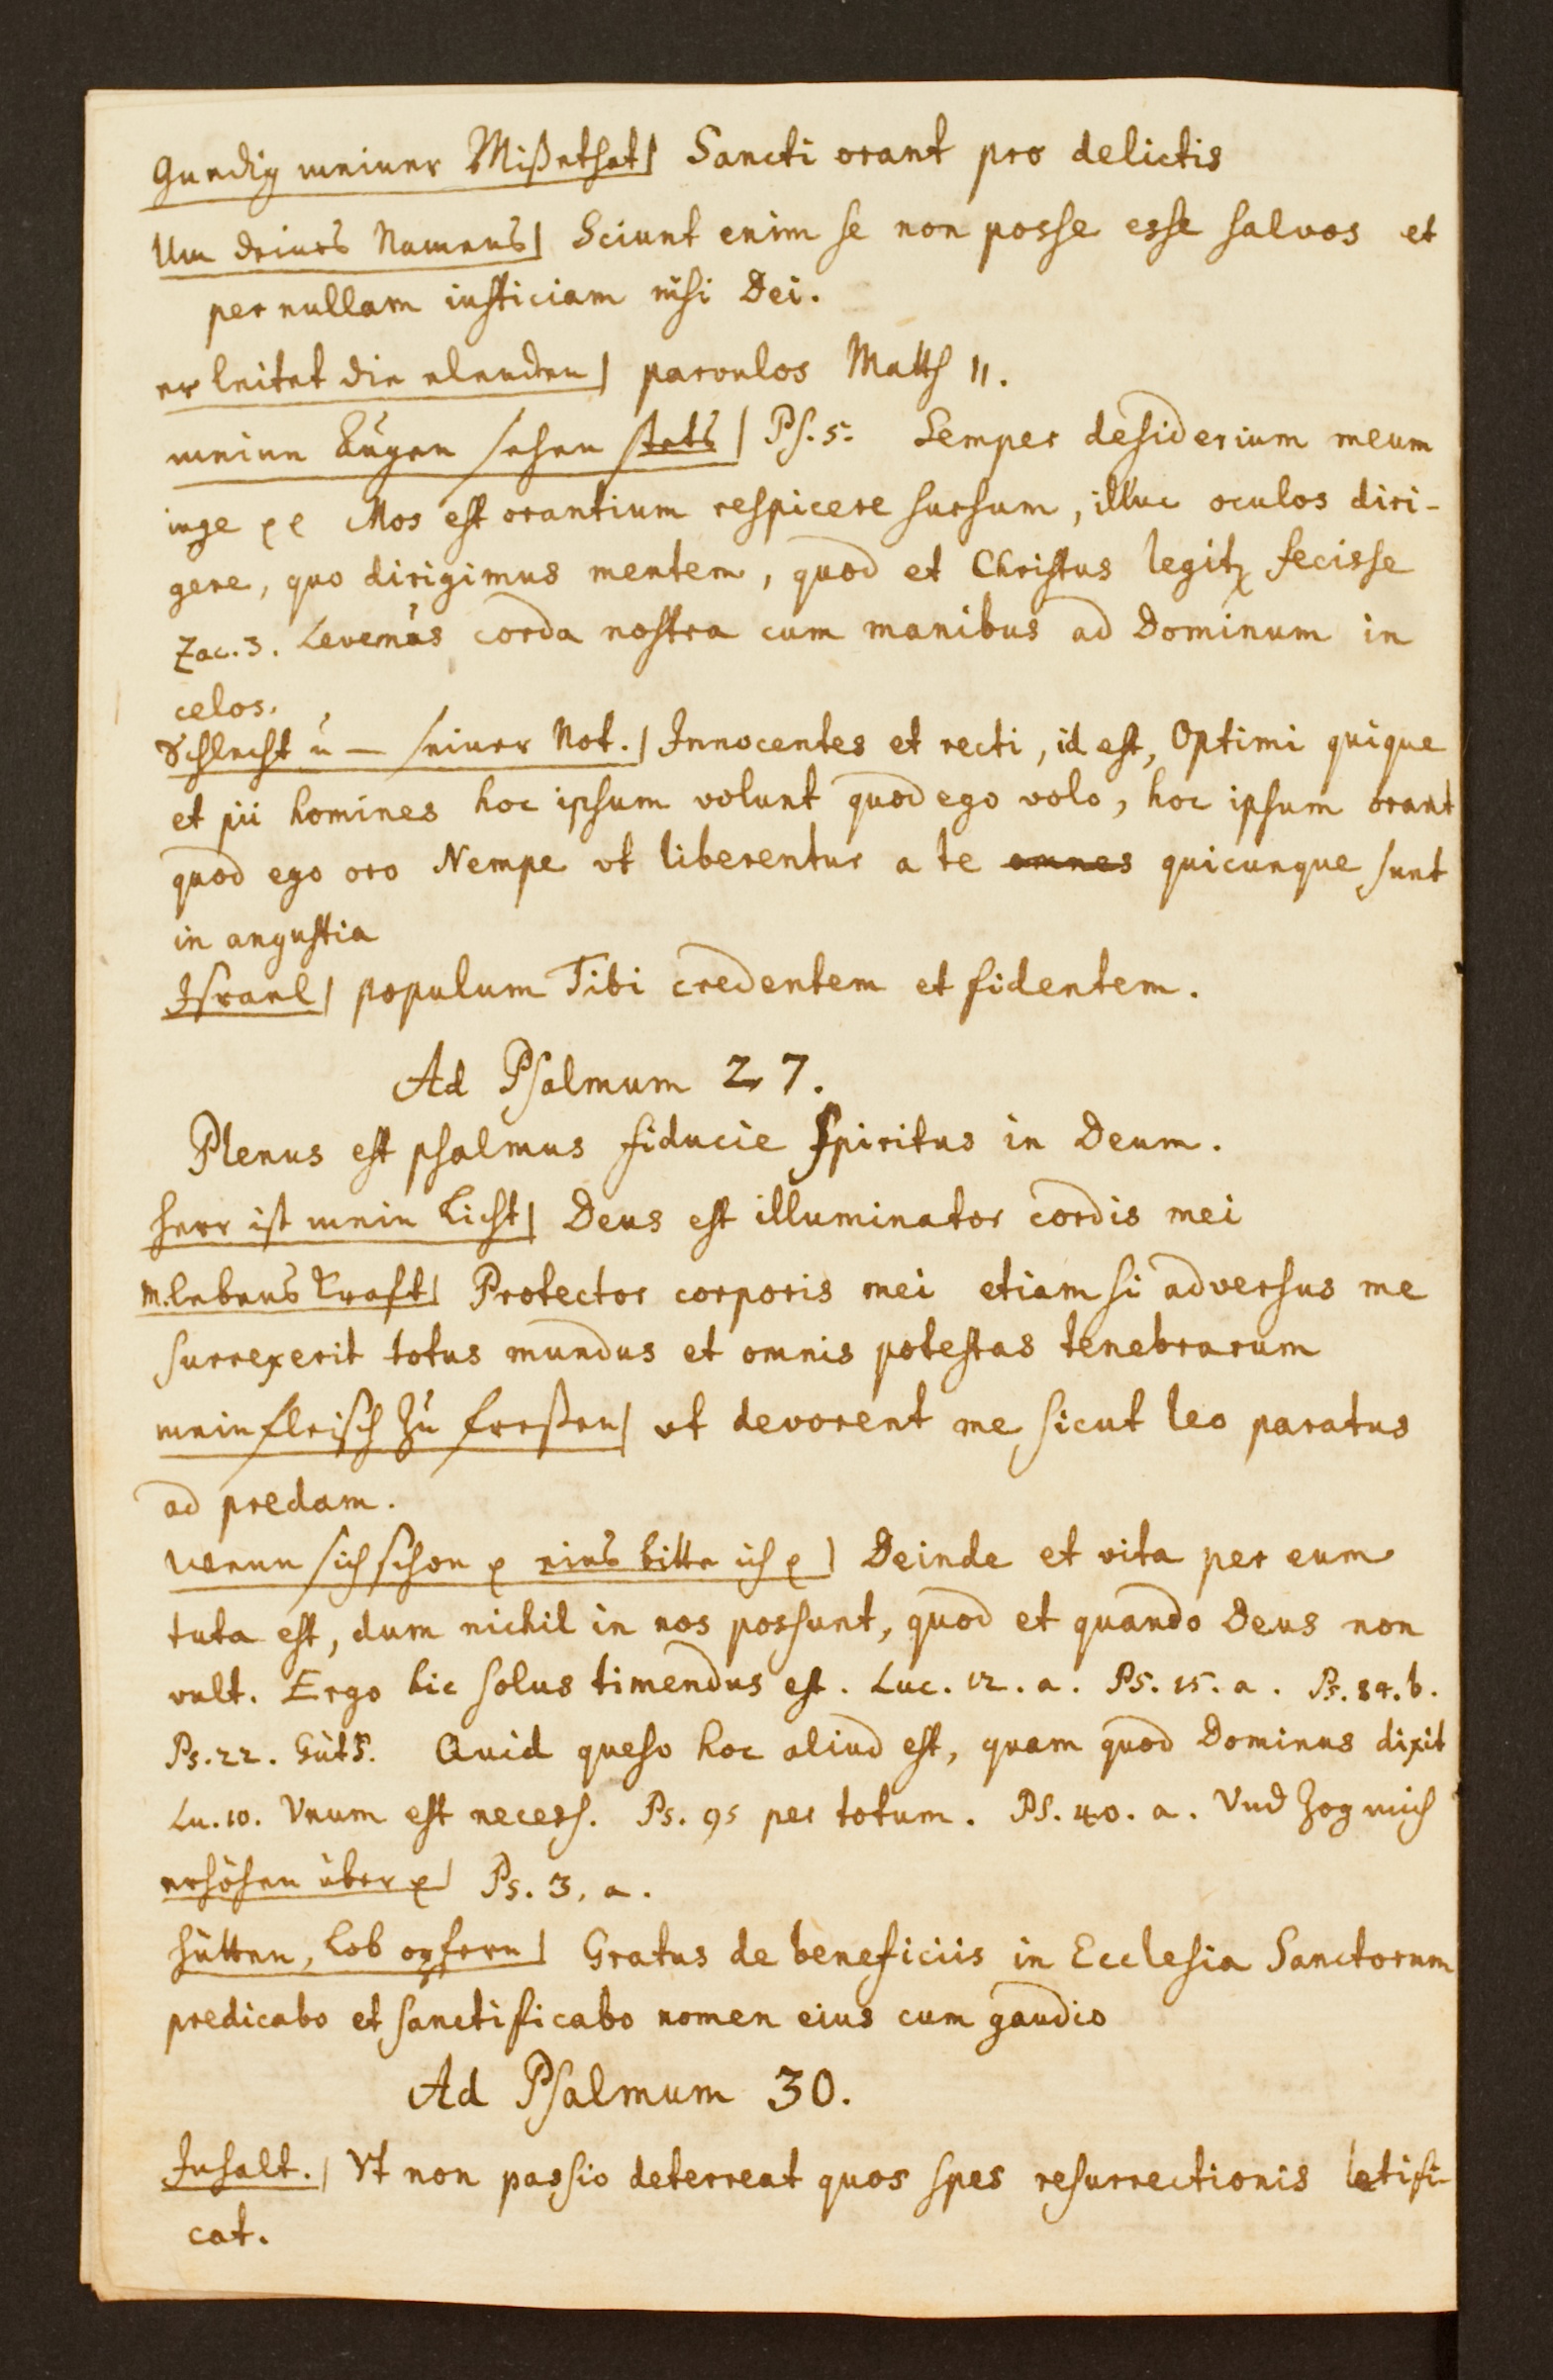 gnedig meiner Mißethat| Sancti orant pro delictis
Um deines Namens| Sciunt enim se non posse esse salvos et
per nullam iusticiam nisi Dei.
er leitet die elenden| parvulos Matth 11.
meine Augen sehen stets| Ps. 5. Semper desiderium meum
inge Mos est orantium respicere sursum, illuc oculos diri-
gere, quo dirigimus mentem, quod et Christus legitꝛ fecisse
Zac. 3. Levemus corda nostra cum manibus ad Dominum in
celos.
Schlecht u — seiner Not.| Innocentes et recti, id est, Optimi quique
et pii homines hoc ipsum volunt quod ego volo, hoc ipsum orant
quod ego oro Nempe vt liberentur a te omnes quicunque sunt
in angustia
Israel| populum Tibi credentem et fidentem.
Ad Psalmum 27.
Plenus est psalmus fiducie Spiritus in Deum.
herr ist mein Licht| Deus est illuminator cordis mei
m. lebens Kraft| Protector corporis mei etiam si adversus me
surrexerit totus mundus et omnis potestas tenebrarum
mein fleisch zu freßen| vt devorent me sicut leo paratus
ad predam.
wenn sich schon ꝛ eins bitte ich ꝛ| Deinde et vita per eum
tuta est, dum nichil in nos possunt, quod et quando Deus non
vult. Ergo hic solus timendus est. Luc. 12. a. Ps. 15. a. Ps. 84. b.
Ps. 22. Quid queso hoc aliud est, quam quod Dominus dixit
Lu. 10. Vnum est necess. Ps. 95 per totum. Ps. 40. a. Vnd zog mich
erhöhen über ꝛ| Ps. 3, a.
hütten, Lob opfern| Gratus de beneficiis in Ecclesia Sanctorum
predicabo et sanctificabo nomen eius cum gaudio
Ad Psalmum 30.
Inhalt.| Vt non passio deterreat quos spes resurrectionis letifi-
cat.